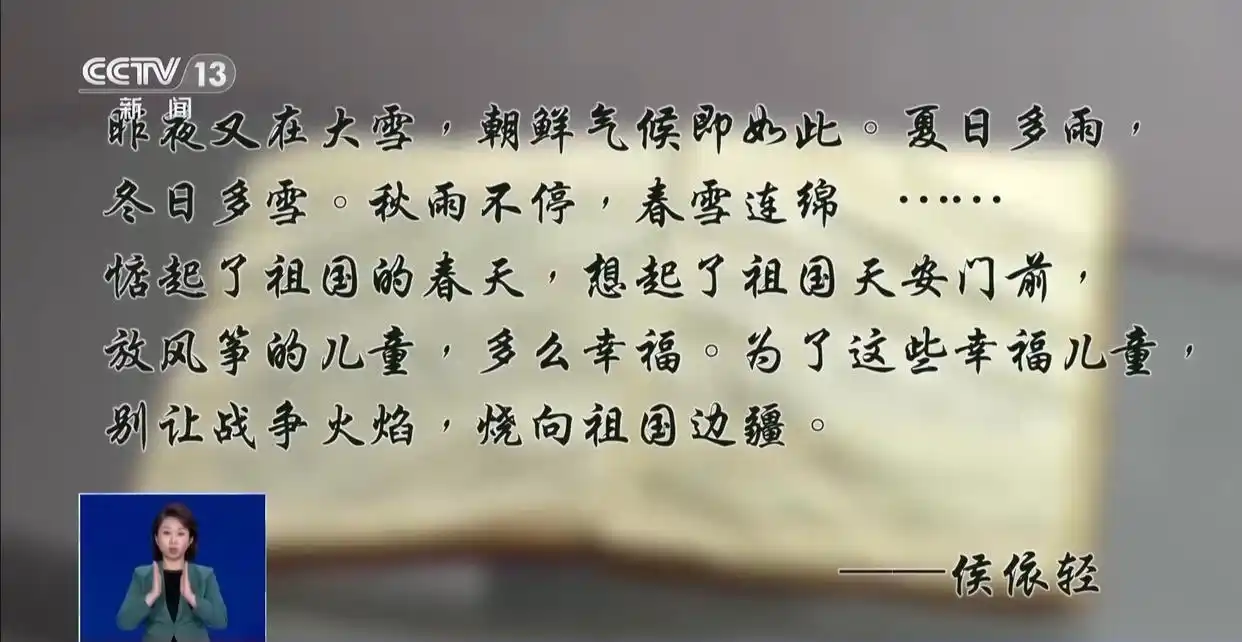 CCTV 13
新闻
昨夜又在大雪，朝鲜气候即如此。夏日多雨，
冬日多雪。秋雨不停，春雪连绵 ……
惦起了祖国的春天，想起了祖国天安门前，
放风筝的儿童，多么幸福。为了这些幸福儿童，
别让战争火焰，烧向祖国边疆。
——侯依轻